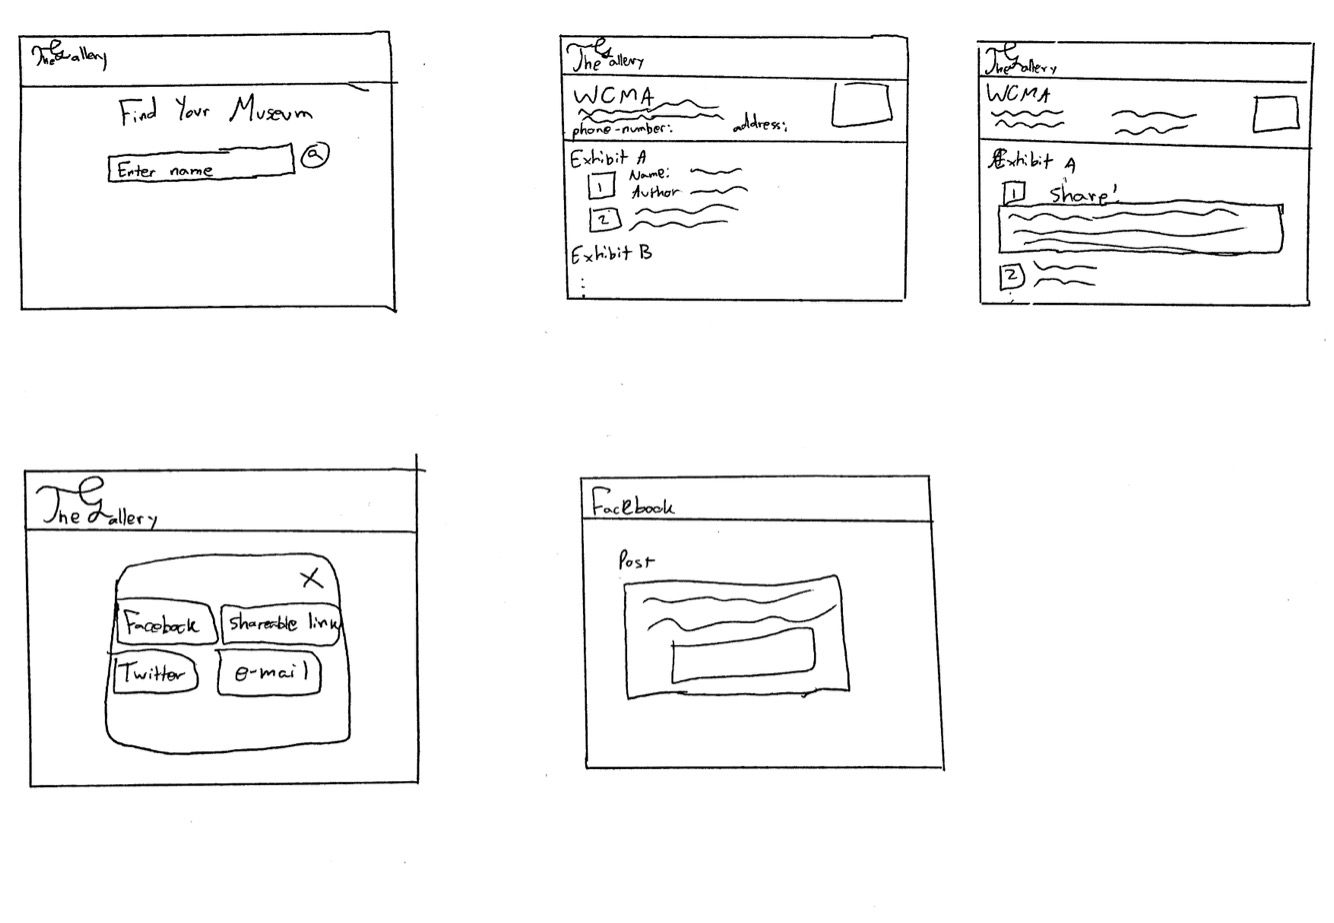 The Gallery
Find Your Museum
Enter name
The Gallery
WCMA
phone-number: address:
Exhibit A
1 Name:
Author
2
Exhibit B
The Gallery
WCMA
Exhibit A
1 share!
2
The Gallery
X
Facebook shareable link
Twitter e-mail
Facebook
Post